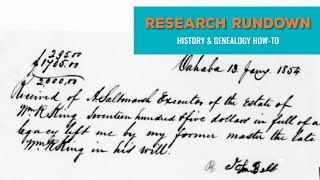 RESEARCH RUNDOWN
HISTORY & GENEALOGY HOW-TO
$ 295.00
$ 1705.00
$ 2000.00
Cahaba 13 Jany. 1854
Received of A. Saltmarsh Executor of the Estate of
Wm R King Seventeen hundred & five dollars in full of a
legacy left me by my former master the late
Wm R King in his will.
Bell